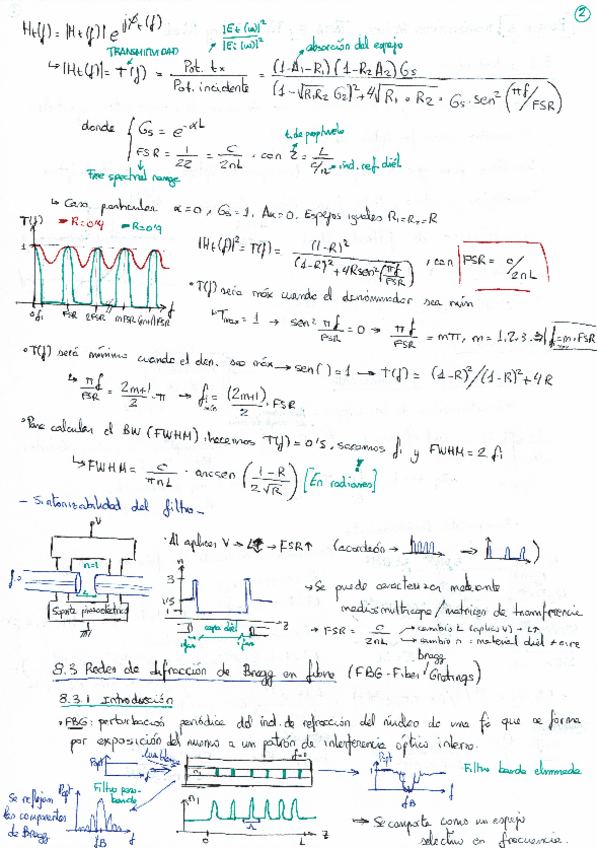 ②
Ht(f) = |Ht(f)| e^jφt(f)
TRANSMITIVIDAD
|Et(w)|² / |Ei(w)|²
absorción del espejo
↳ |Ht(f)|² = T(f) = Pot. tx / Pot. incidente = (1-A1-R1)(1-R2 A2)Gs / (1-√R1R2 G2)² + 4√R1·R2 · Gs · sen²(πf/FSR)
donde { Gs = e^-αL
FSR = 1/2τ = c/2nL · con τ = L/(c/n)
ind. ref. diél
Free spectral range
↳ Caso particular α=0, Gs=1, Ak=0. Espejos iguales R1=R2=R
T(f) R=0'4 R=0'9
1
0 f1 FSR 2FSR mFSR (m+1)FSR f
|Ht(f)|² = T(f) = (1-R)² / (1-R)² + 4R sen²(πf/FSR), con FSR = c/2nL
• T(f) será máx cuando el denominador sea mín
↳ Tmax = 1 → sen² πf/FSR = 0 → πf/FSR = mπ, m = 1, 2, 3... f = m·FSR
• T(f) será mínimo cuando el den. sea máx → sen( ) = 1 → T(f) = (1-R)²/(1-R)² + 4R
↳ πf/FSR = 2m+1/2 · π → fmin = (2m+1)/2 · FSR
• Para calcular el BW (FWHM) hacemos T(f) = 0'5, sacamos f1 y FWHM = 2 f1
↳ FWHM = c/πnL · arcsen (1-R / 2√R) [En radianes]
- Sintonizabilidad del filtro -
V
n=1
L
Soporte piezoeléctrico
n
3
1'5
1
capa diél
z
• Al aplicar V → L → FSR↑ (acordeón → )
→ Se puede caracterizar mediante
medios multicapa / matrices de transferencia
→ FSR = c/2nL → cambio L (aplico V) → L↑
→ cambio n: material diél ≠ aire
8.3 Redes de difracción de Bragg en fibre (FBG - Fiber Bragg Gratings)
8.3.1 Introducción
• FBG: perturbación periódica del ind. de refracción del núcleo de una fo que se forma
por exposición del mismo a un patrón de interferencia óptico intenso.
Popt
luz blanca
f
Popt
1
fB
f
Filtro banda eliminada
Se reflejan
las componentes
de Bragg
Popt
Filtro paso
banda
fB
f
n1
0
Λ
L
z
→ Se comporta como un espejo
selectivo en frecuencia.